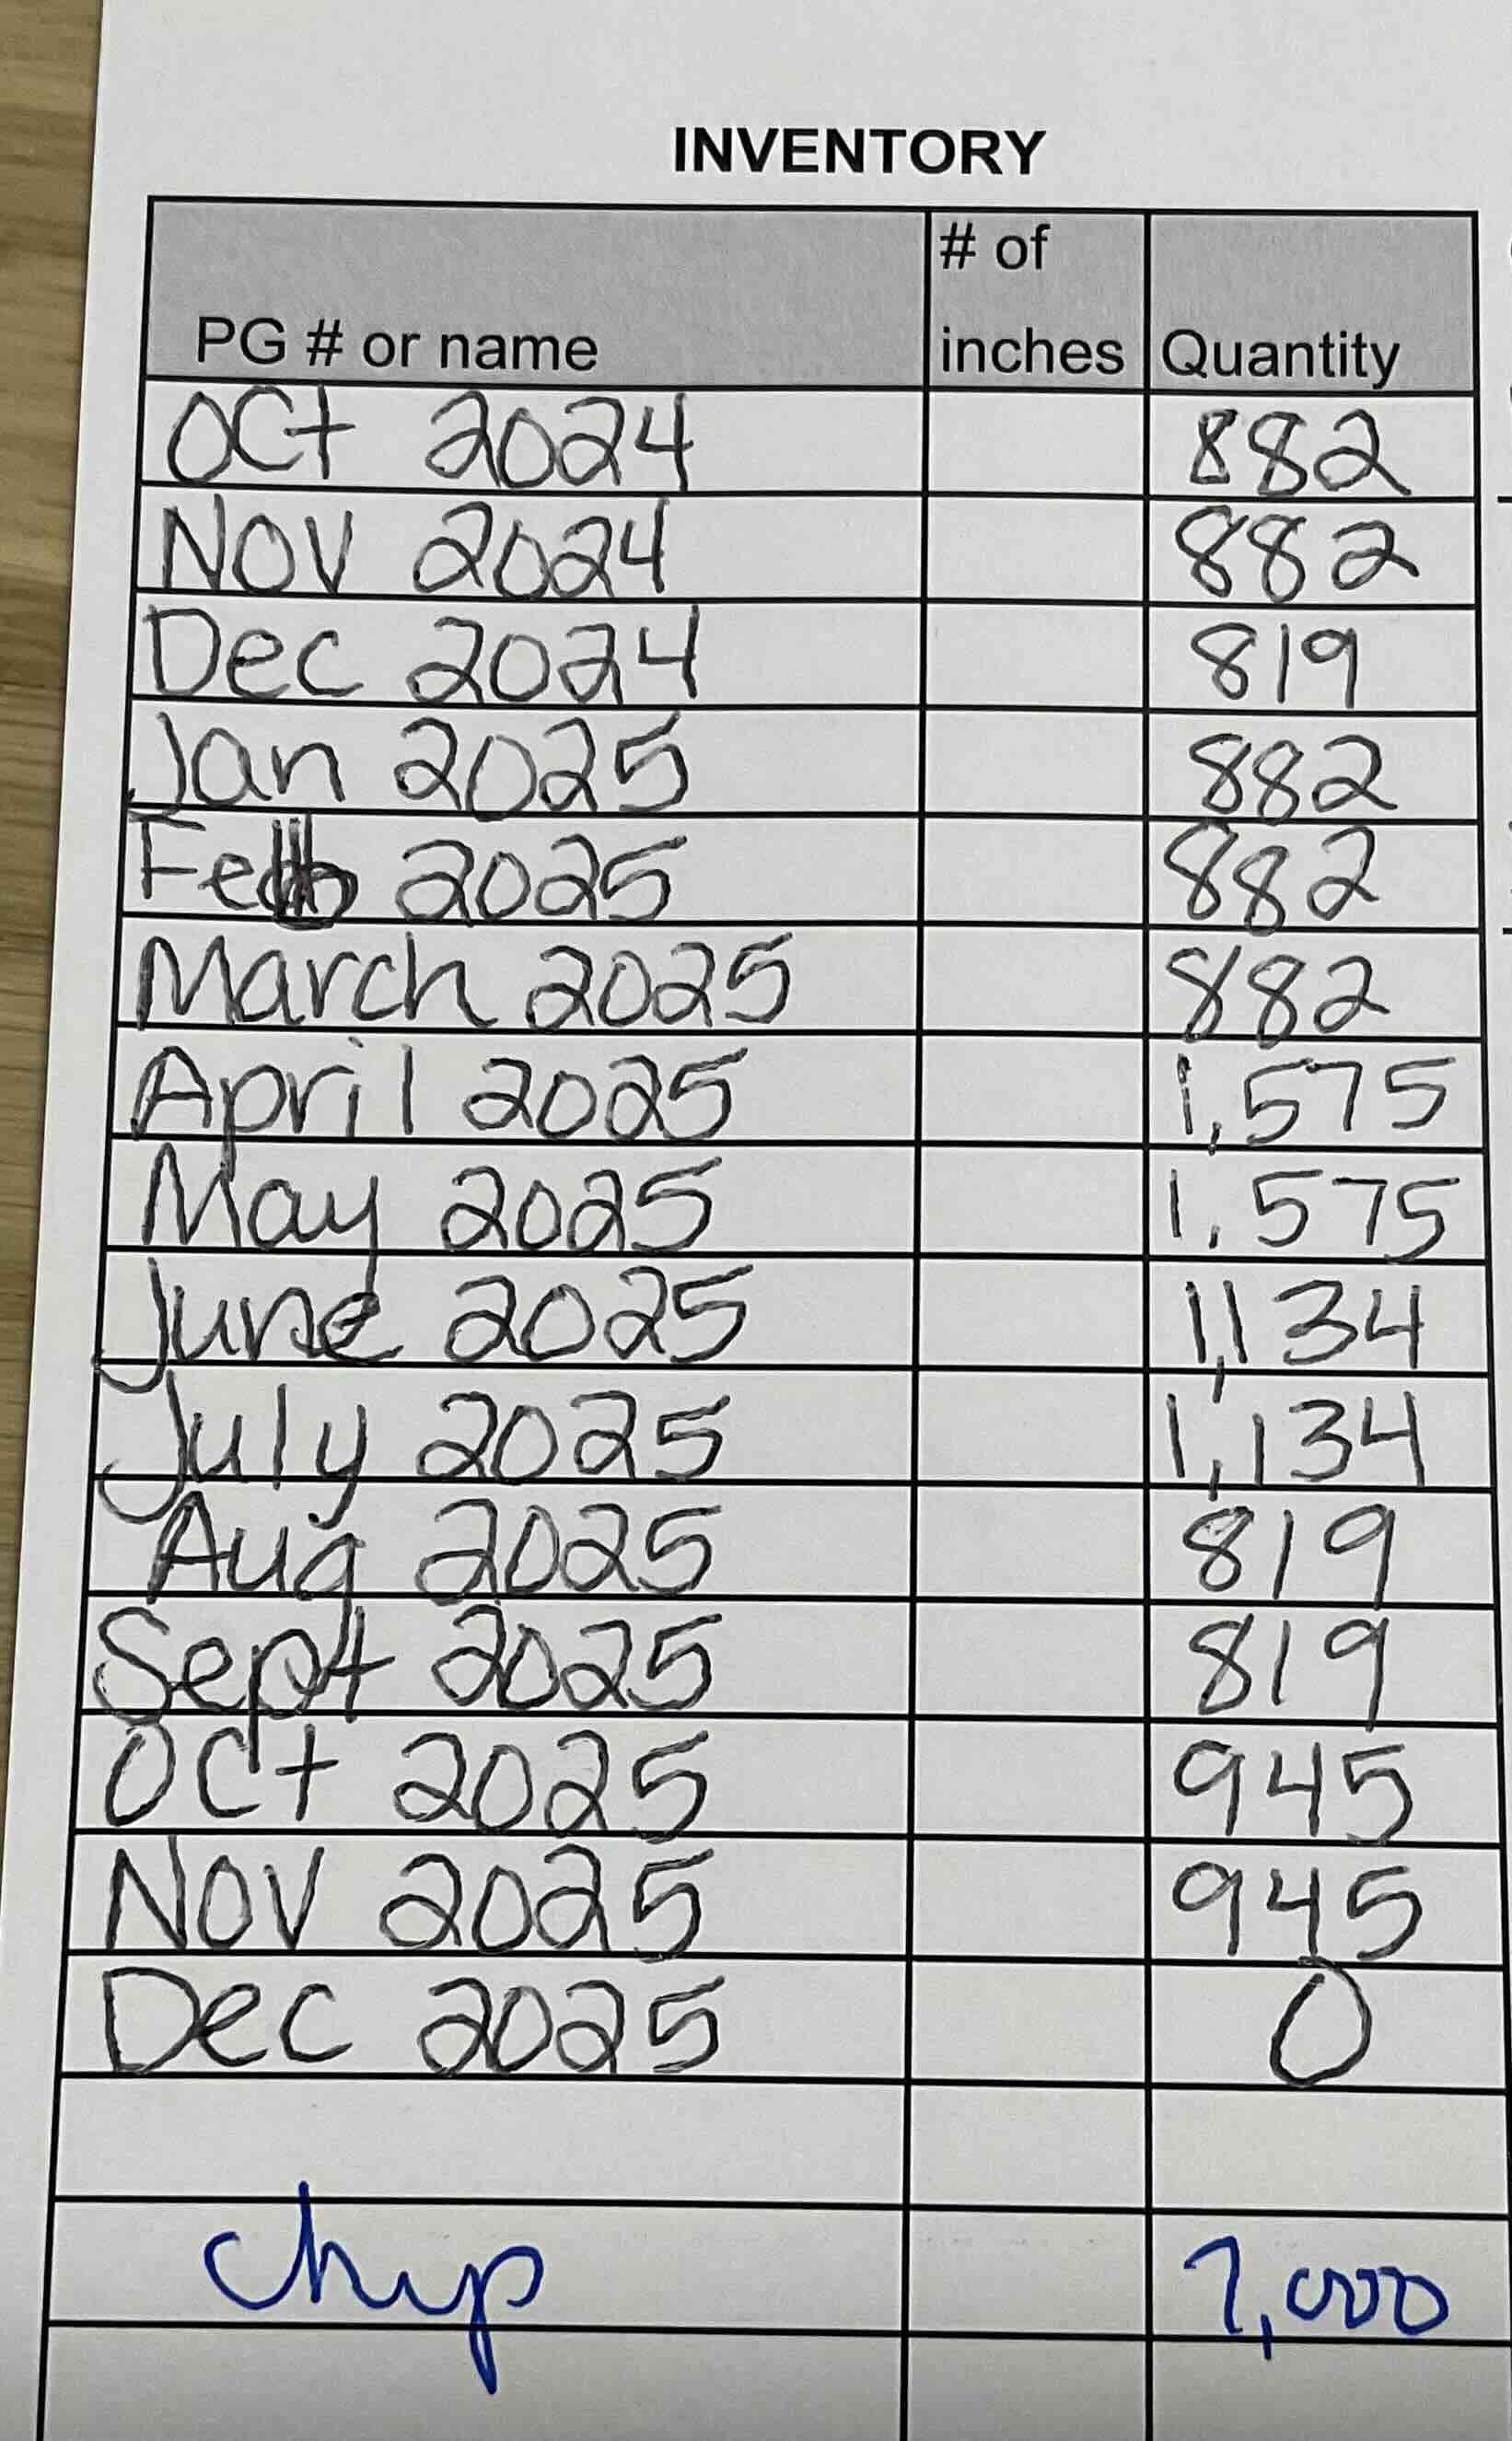 INVENTORY
PG # or name # of inches Quantity
Oct 2024 882
Nov 2024 882
Dec 2024 819
Jan 2025 882
Feb 2025 882
March 2025 882
April 2025 1,575
May 2025 1,575
June 2025 1,134
July 2025 1,134
Aug 2025 819
Sept 2025 819
Oct 2025 945
Nov 2025 945
Dec 2025 0
Chip 7,000